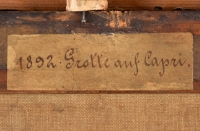 1892. Grotte auf Capri.